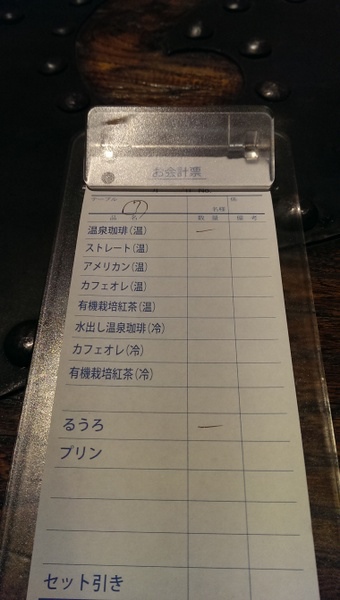 お会計票
テーブル 係
⑦ 名様
品 名 数 量 備 考
温泉珈琲(温) 一
ストレート(温)
アメリカン(温)
カフェオレ(温)
有機栽培紅茶(温)
水出し温泉珈琲(冷)
カフェオレ(冷)
有機栽培紅茶(冷)
るうろ 一
プリン
セット引き